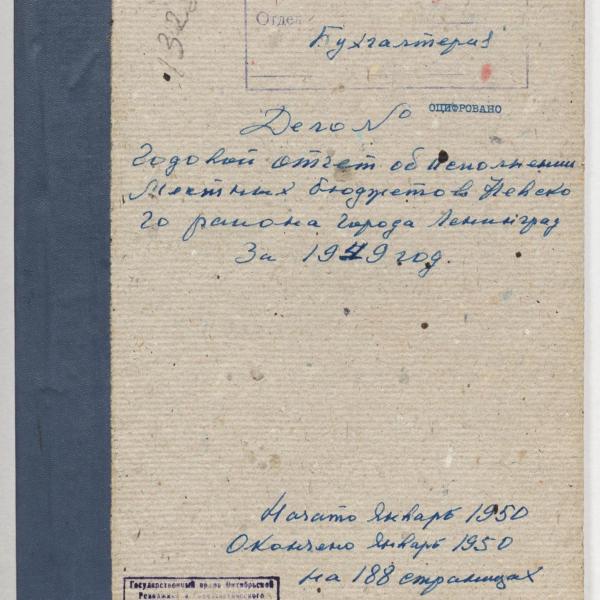 132
Отдел
Бухгалтерия
ОЦИФРОВАНО
Дело №
Годовой отчет об исполнении
Местных бюджетов Невско
го района города Ленинград
За 1949 год.
Начато Январь 1950
Окончено Январь 1950
на 188 страницах
Государственный архив Октябрьской
Революции и Социалистического